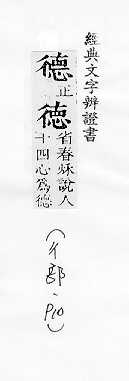 經典文字辨證書
德正徳省春秋說人
十四心爲德
(彳部·P10)